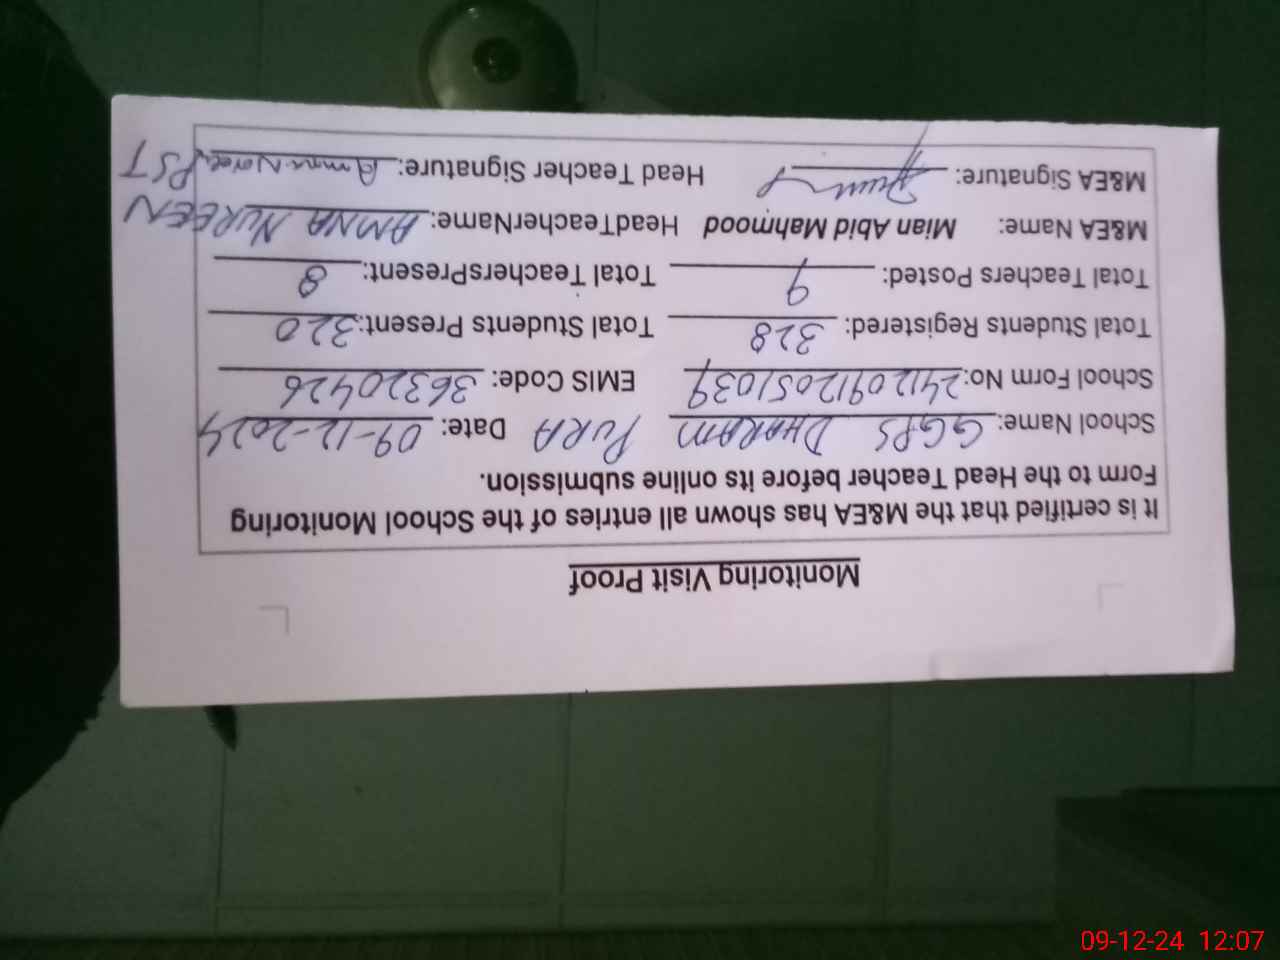 Monitoring Visit Proof
It is certified that the M&EA has shown all entries of the School Monitoring
Form to the Head Teacher before its online submission.
School Name: GGPS DHARAM PURA Date: 09-12-2024
School Form No: 241120912051039 EMIS Code: 36320426
Total Students Registered: 328 Total Students Present: 320
Total Teachers Posted: 9 Total TeachersPresent: 8
M&EA Name: Mian Abid Mahmood HeadTeacherName: AMNA NUREEN
M&EA Signature: Head Teacher Signature: Amna Noreen PST
09-12-24 12:07